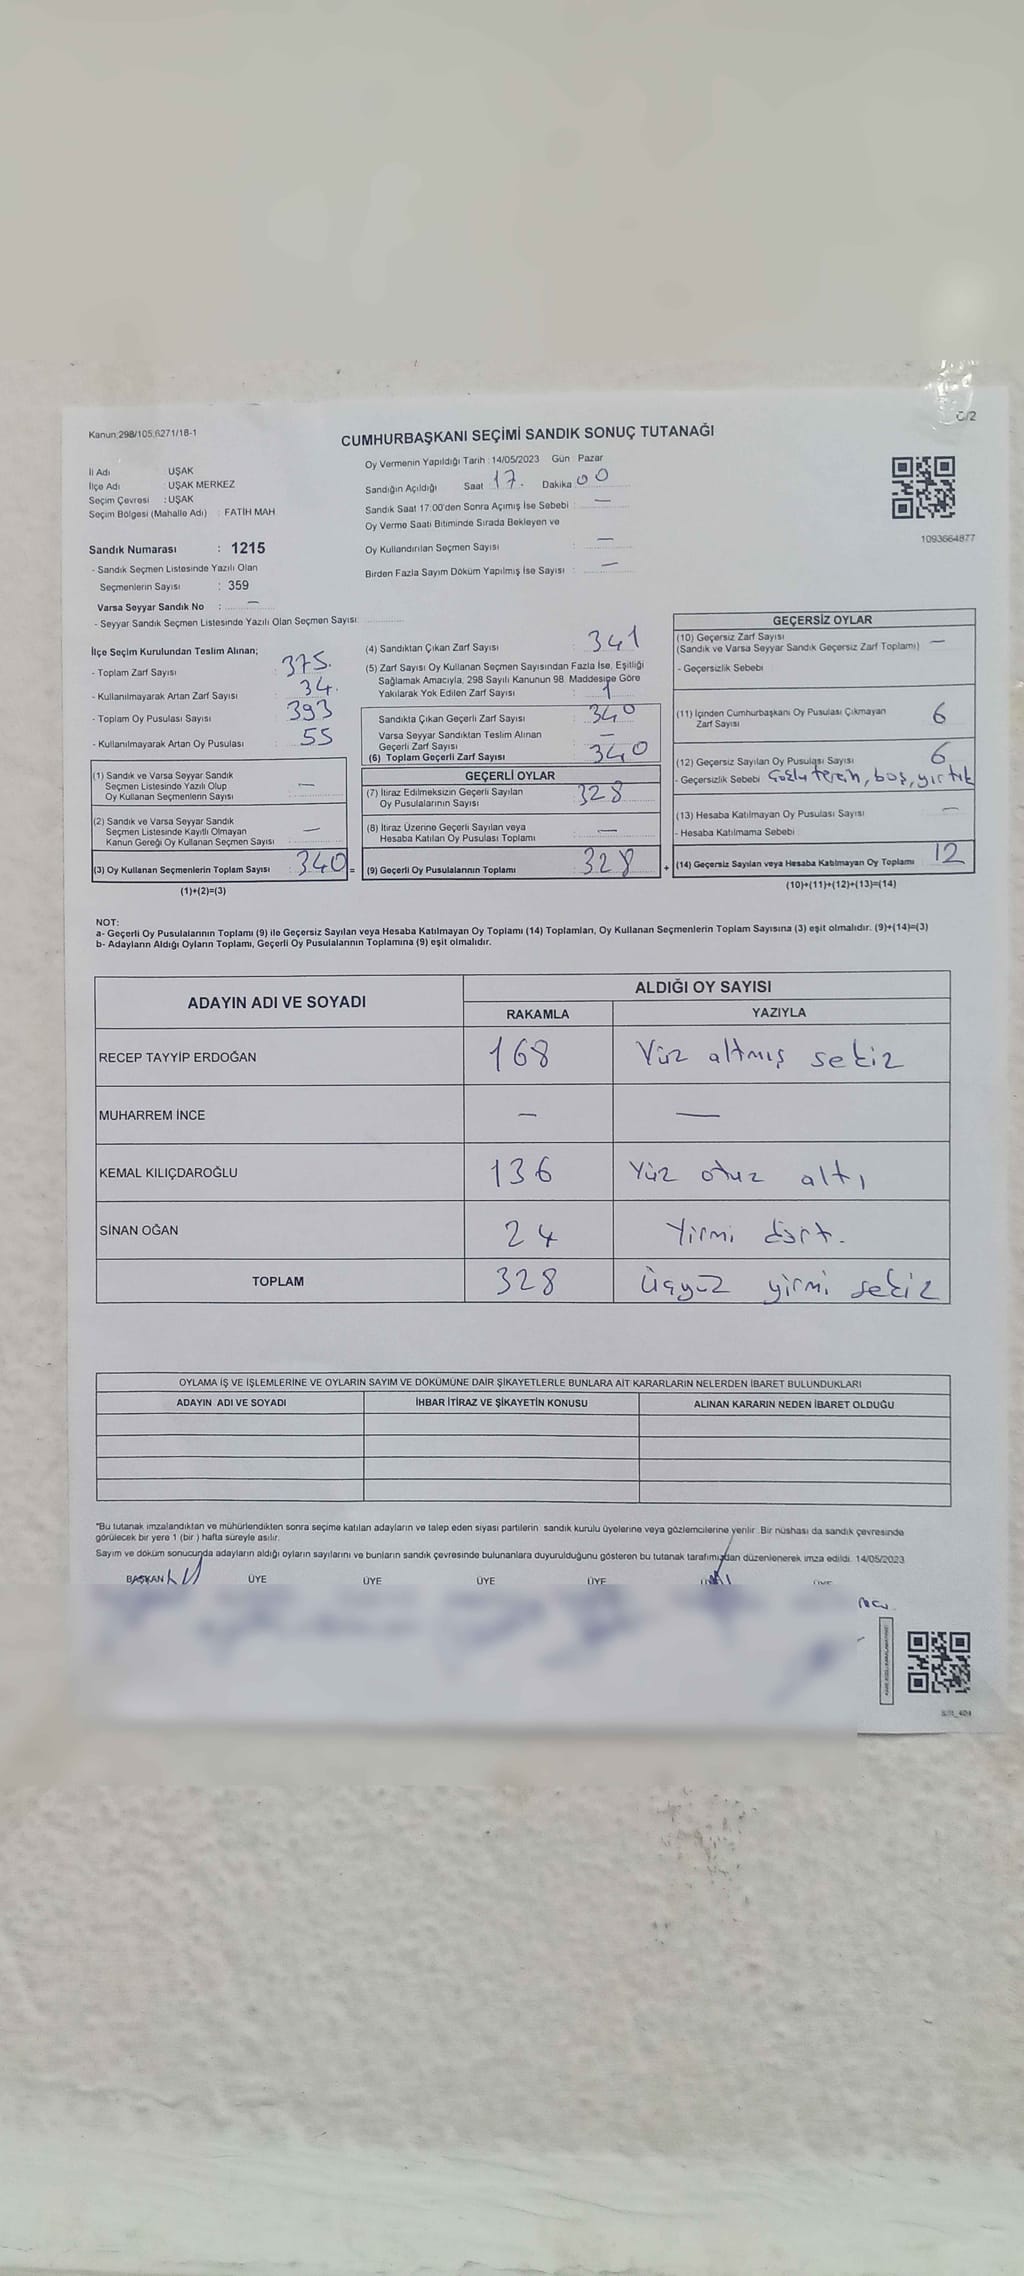 Kanun;298/105,6271/18-1
C/2
CUMHURBAŞKANI SEÇİMİ SANDIK SONUÇ TUTANAĞI
İl Adı UŞAK
İlçe Adı : UŞAK MERKEZ
Seçim Çevresi : UŞAK
Seçim Bölgesi (Mahalle Adı) : FATİH MAH
Sandık Numarası : 1215
- Sandık Seçmen Listesinde Yazılı Olan
Seçmenlerin Sayısı : 359
Varsa Seyyar Sandık No : —
- Seyyar Sandık Seçmen Listesinde Yazılı Olan Seçmen Sayısı:
Oy Vermenin Yapıldığı Tarih : 14/05/2023 Gün Pazar
Sandığın Açıldığı Saat 17. Dakika 00
Sandık Saat 17:00'den Sonra Açımış İse Sebebi : —
Oy Verme Saati Bitiminde Sırada Bekleyen ve
Oy Kullandırılan Seçmen Sayısı : —
Birden Fazla Sayım Döküm Yapılmış İse Sayısı : —
1093664877
İlçe Seçim Kurulundan Teslim Alınan;
- Toplam Zarf Sayısı : 375.
- Kullanılmayarak Artan Zarf Sayısı : 34.
- Toplam Oy Pusulası Sayısı : 393
- Kullanılmayarak Artan Oy Pusulası : 55
(1) Sandık ve Varsa Seyyar Sandık
Seçmen Listesinde Yazılı Olup
Oy Kullanan Seçmenlerin Sayısı : —
(2) Sandık ve Varsa Seyyar Sandık
Seçmen Listesinde Kayıtlı Olmayan
Kanun Gereği Oy Kullanan Seçmen Sayısı : —
(3) Oy Kullanan Seçmenlerin Toplam Sayısı : 340 =
(1)+(2)=(3)
(4) Sandıktan Çıkan Zarf Sayısı : 341
(5) Zarf Sayısı Oy Kullanan Seçmen Sayısından Fazla İse, Eşitliği
Sağlamak Amacıyla, 298 Sayılı Kanunun 98. Maddesine Göre
Yakılarak Yok Edilen Zarf Sayısı : 1
Sandıkta Çıkan Geçerli Zarf Sayısı : 340
Varsa Seyyar Sandıktan Teslim Alınan
Geçerli Zarf Sayısı : —
(6) Toplam Geçerli Zarf Sayısı : 340
GEÇERLİ OYLAR
(7) İtiraz Edilmeksizin Geçerli Sayılan
Oy Pusulalarının Sayısı : 328
(8) İtiraz Üzerine Geçerli Sayılan veya
Hesaba Katılan Oy Pusulası Toplamı : —
(9) Geçerli Oy Pusulalarının Toplamı : 328 +
GEÇERSİZ OYLAR
(10) Geçersiz Zarf Sayısı
(Sandık ve Varsa Seyyar Sandık Geçersiz Zarf Toplamı) —
- Geçersizlik Sebebi
(11) İçinden Cumhurbaşkanı Oy Pusulası Çıkmayan
Zarf Sayısı 6
(12) Geçersiz Sayılan Oy Pusulası Sayısı 6
- Geçersizlik Sebebi Çoklu tercih, boş, yırtık
(13) Hesaba Katılmayan Oy Pusulası Sayısı —
- Hesaba Katılmama Sebebi
(14) Geçersiz Sayılan veya Hesaba Katılmayan Oy Toplamı 12
(10)+(11)+(12)+(13)=(14)
NOT:
a- Geçerli Oy Pusulalarının Toplamı (9) ile Geçersiz Sayılan veya Hesaba Katılmayan Oy Toplamı (14) Toplamları, Oy Kullanan Seçmenlerin Toplam Sayısına (3) eşit olmalıdır. (9)+(14)=(3)
b- Adayların Aldığı Oyların Toplamı, Geçerli Oy Pusulalarının Toplamına (9) eşit olmalıdır.
ADAYIN ADI VE SOYADI ALDIĞI OY SAYISI
RAKAMLA YAZIYLA
RECEP TAYYİP ERDOĞAN 168 Yüz altmış sekiz
MUHARREM İNCE — —
KEMAL KILIÇDAROĞLU 136 Yüz otuz altı
SİNAN OĞAN 24 Yirmi dört.
TOPLAM 328 Üçyüz yirmi sekiz
OYLAMA İŞ VE İŞLEMLERİNE VE OYLARIN SAYIM VE DÖKÜMÜNE DAİR ŞİKAYETLERLE BUNLARA AİT KARARLARIN NELERDEN İBARET BULUNDUKLARI
ADAYIN ADI VE SOYADI İHBAR İTİRAZ VE ŞİKAYETİN KONUSU ALINAN KARARIN NEDEN İBARET OLDUĞU
"Bu tutanak imzalandıktan ve mühürlendikten sonra seçime katılan adayların ve talep eden siyasi partilerin sandık kurulu üyelerine veya gözlemcilerine verilir. Bir nüshası da sandık çevresinde
görülecek bir yere 1 (bir ) hafta süreyle asılır.
Sayım ve döküm sonucunda adayların aldığı oyların sayılarını ve bunların sandık çevresinde bulunanlara duyurulduğunu gösteren bu tutanak tarafımızdan düzenlenerek imza edildi. 14/05/2023
BAŞKAN ÜYE ÜYE ÜYE ÜYE ÜYE